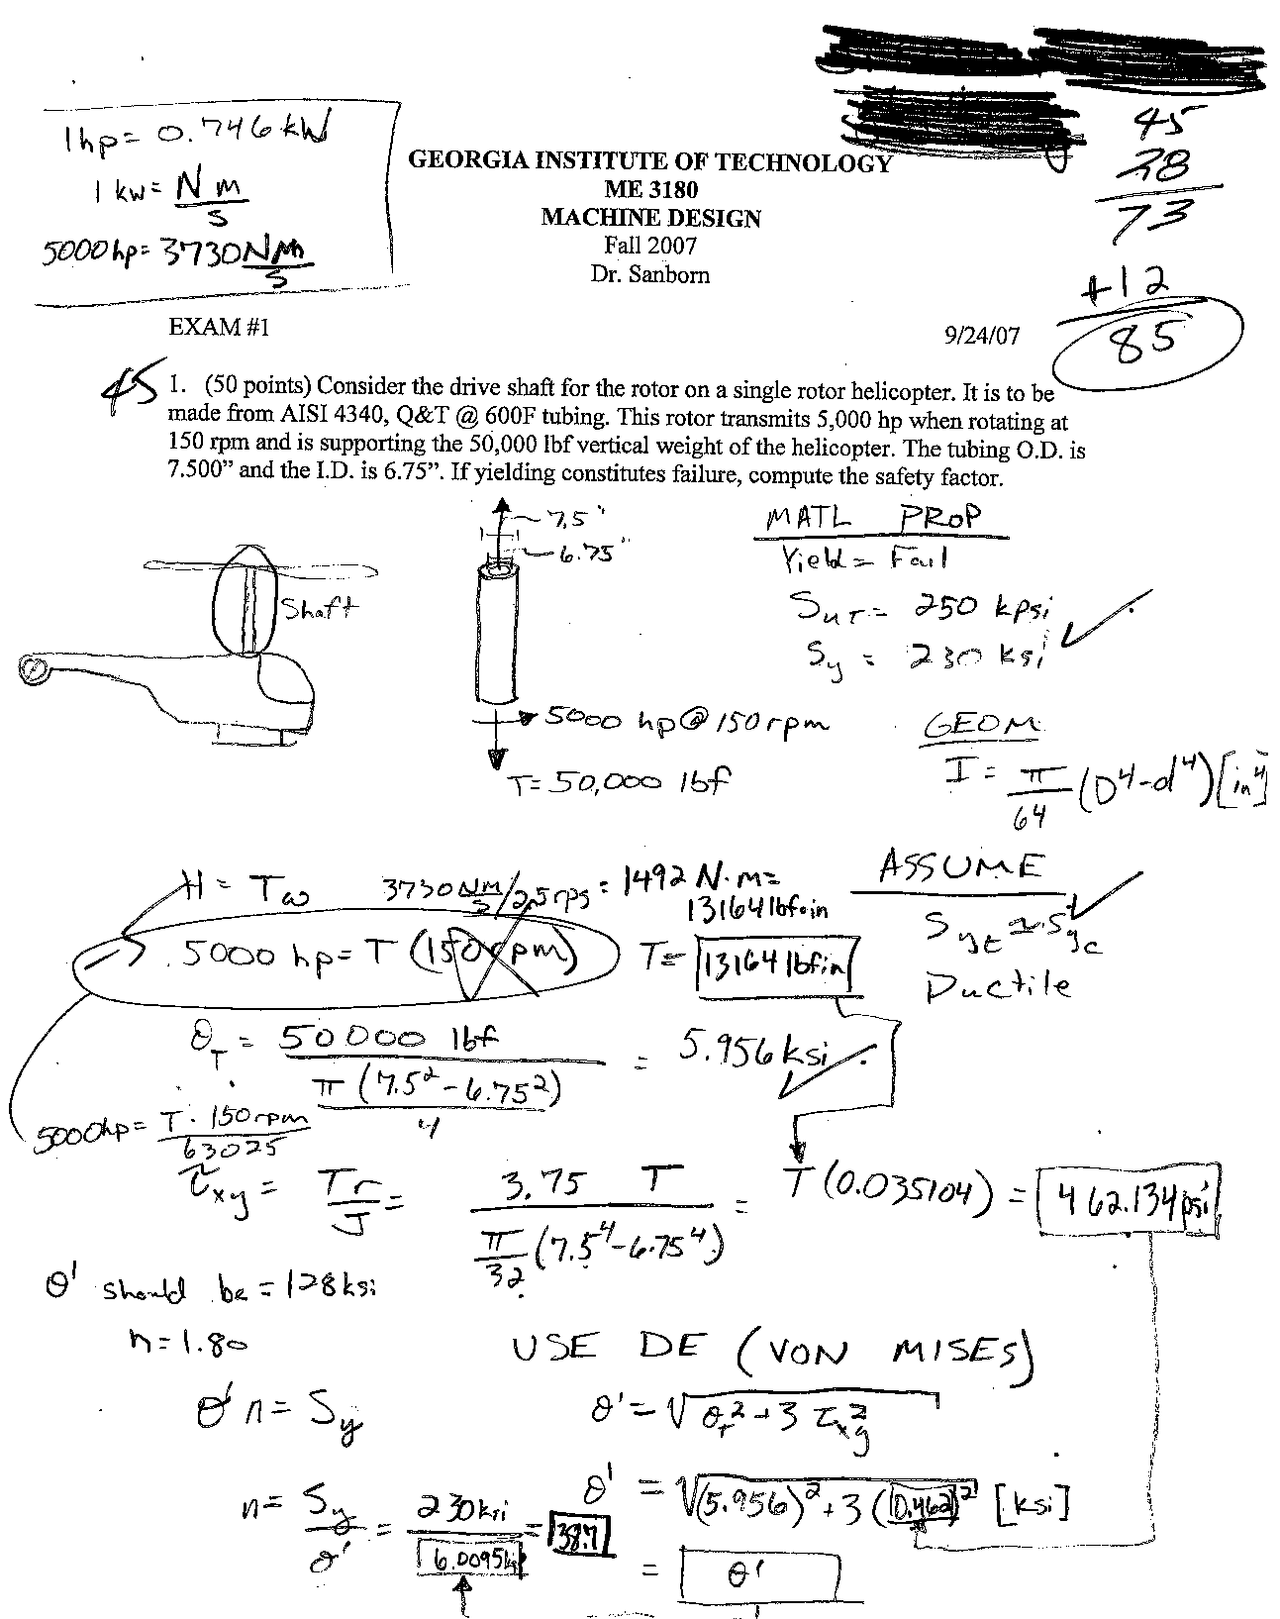 1hp = 0.746 kW
1 kW = N m / s
5000 hp = 3730 Nm / s
45
28
73
+12
85
GEORGIA INSTITUTE OF TECHNOLOGY
ME 3180
MACHINE DESIGN
Fall 2007
Dr. Sanborn
EXAM #1 9/24/07
45
1. (50 points) Consider the drive shaft for the rotor on a single rotor helicopter. It is to be
made from AISI 4340, Q&T @ 600F tubing. This rotor transmits 5,000 hp when rotating at
150 rpm and is supporting the 50,000 lbf vertical weight of the helicopter. The tubing O.D. is
7.500” and the I.D. is 6.75”. If yielding constitutes failure, compute the safety factor.
7.5"
6.75"
Shaft
5000 hp @ 150 rpm
T = 50,000 lbf
MATL PROP
Yield = Fail
Sut = 250 kpsi
Sy = 230 ksi
GEOM
I = π/64 (D⁴-d⁴) [in⁴]
ASSUME
Syt ≈ Syc
Ductile
H = Tω 3730 Nm/s / 2.5 rps = 1492 N·m =
13164 lbf·in
5000 hp = T (150 rpm) T = 13164 lbf in
σT = 50000 lbf / (π (7.5² - 6.75²) / 4) = 5.956 ksi
5000hp = T · 150rpm / 63025
τxy = Tr / J = 3.75 T / (π/32 (7.5⁴ - 6.75⁴)) = T (0.035104) = 462.134 psi
σ' should be = 128 ksi
n = 1.80
USE DE (VON MISES)
σ' n = Sy
σ' = √(σT² + 3 τxy²)
n = Sy / σ' = 230 ksi / 6.0095 ksi = 38.7
σ' = √((5.956)² + 3 (0.462)²) [ksi]
= σ'